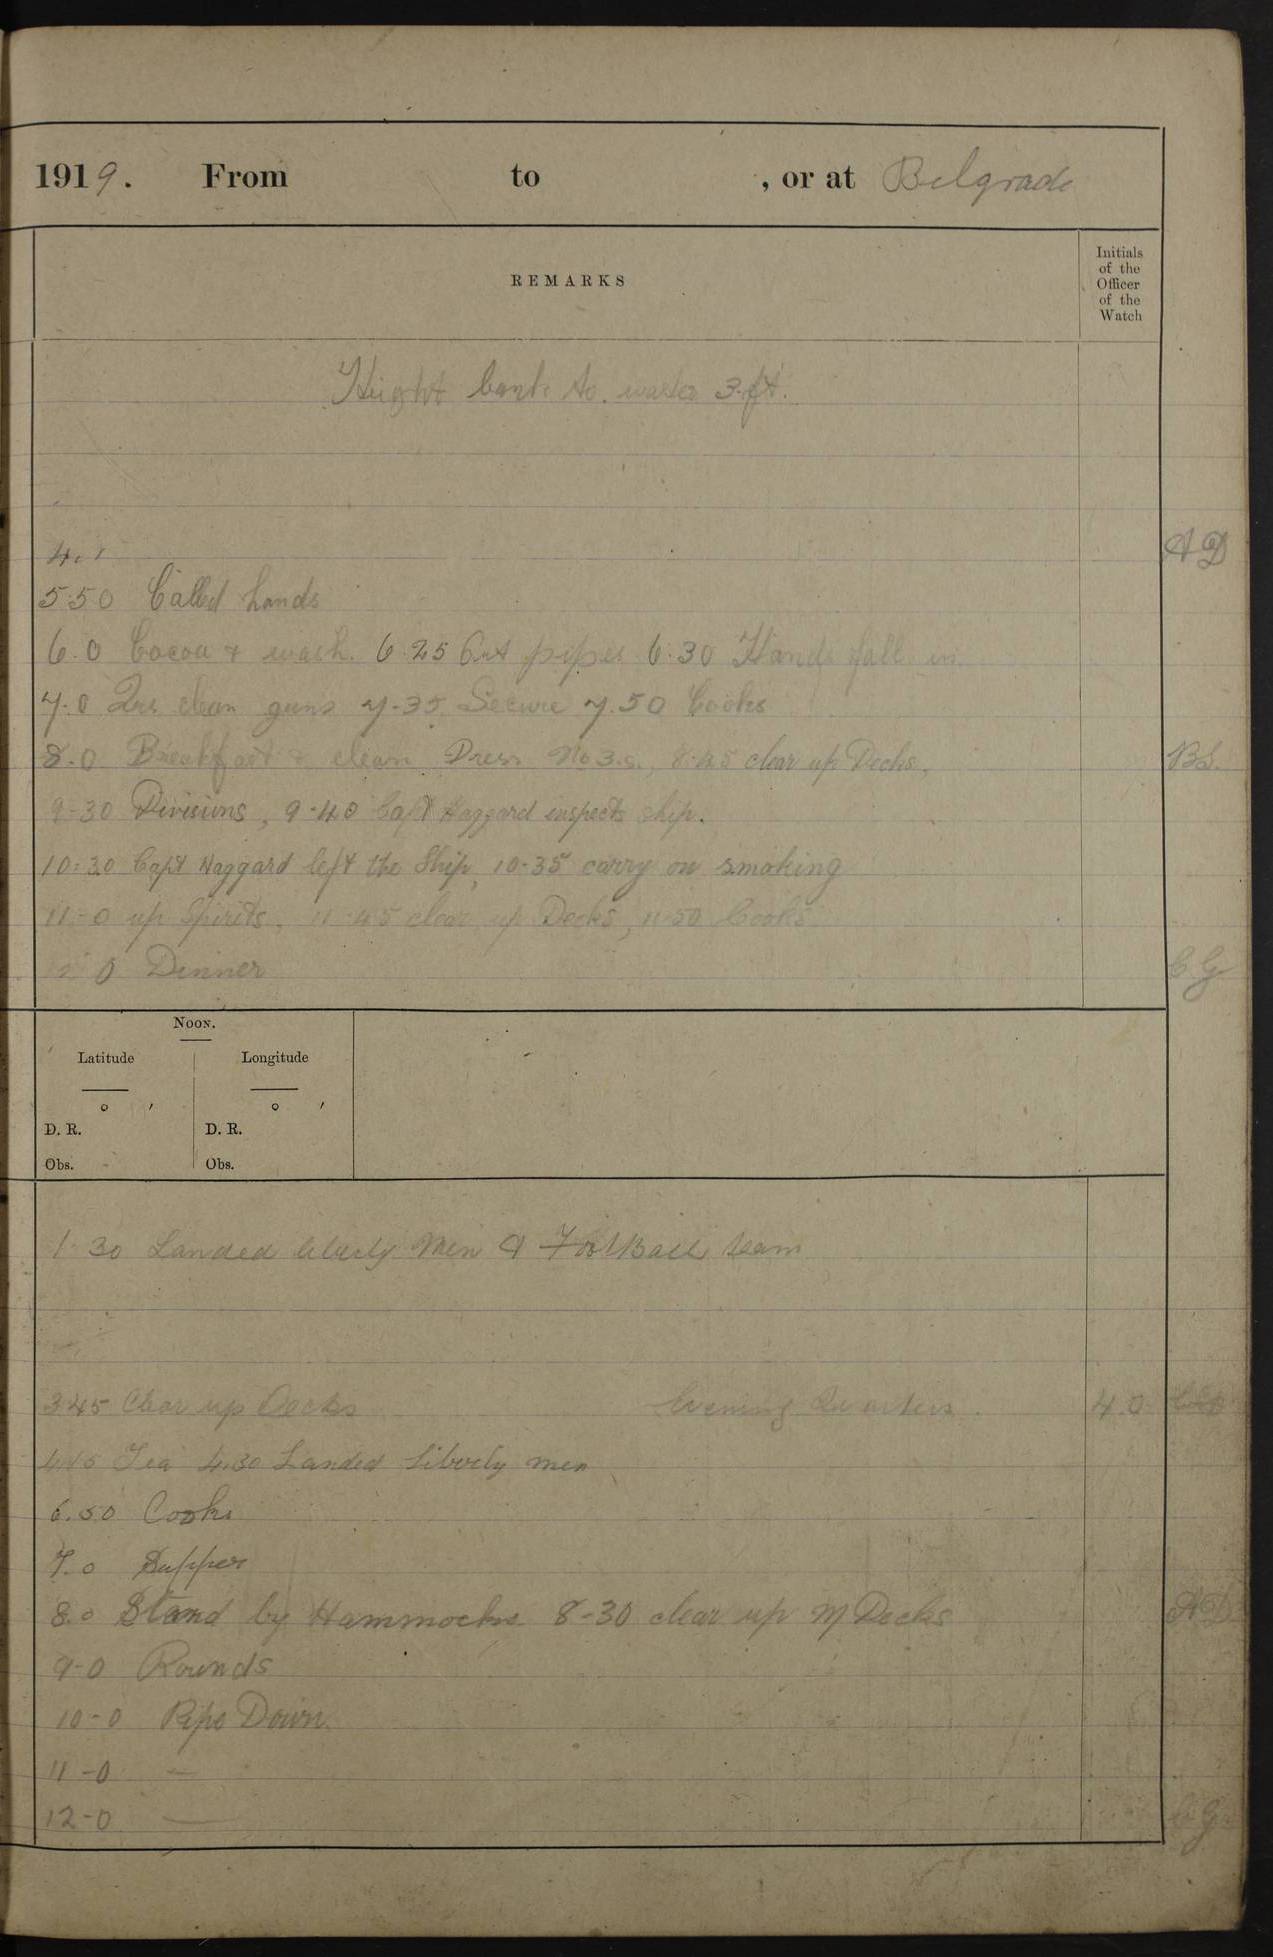 1919. From to , or at Belgrade
REMARKS
Initials
of the
Officer
of the
Watch
Height bank to water 3.ft.
4.
A D
5.50 Called hands
6.0 Cocoa & wash. 6.25 Out pipes 6.30 Hands fall in
7.0 Qrs clean guns 7-35 Secure 7.50 Cooks
8.0 Breakfast & clean Dress No 3.s, 8.45 clear up Decks.
9-30 Divisions, 9-40 Capt Haggard inspects ship.
10:30 Capt Haggard left the Ship, 10-35 carry on smoking
11-0 up Spirits. 11-45 clear up Decks, 11-50 Cooks
0 Dinner
C G
NOON.
Latitude Longitude
° ′ ° ′
D. R. D. R.
Obs. Obs.
1-30 Landed liberty Men & FootBall team
345 Clear up Decks Evening Quarters. 4.0
4.15 Tea 4.30 Landed Liberty men
6.50 Cooks
7.0 Supper
8.0 Stand by Hammocks 8-30 clear up M Decks A.D
9-0 Rounds
10-0 Pipe Down.
11-0 —
12-0 — C G